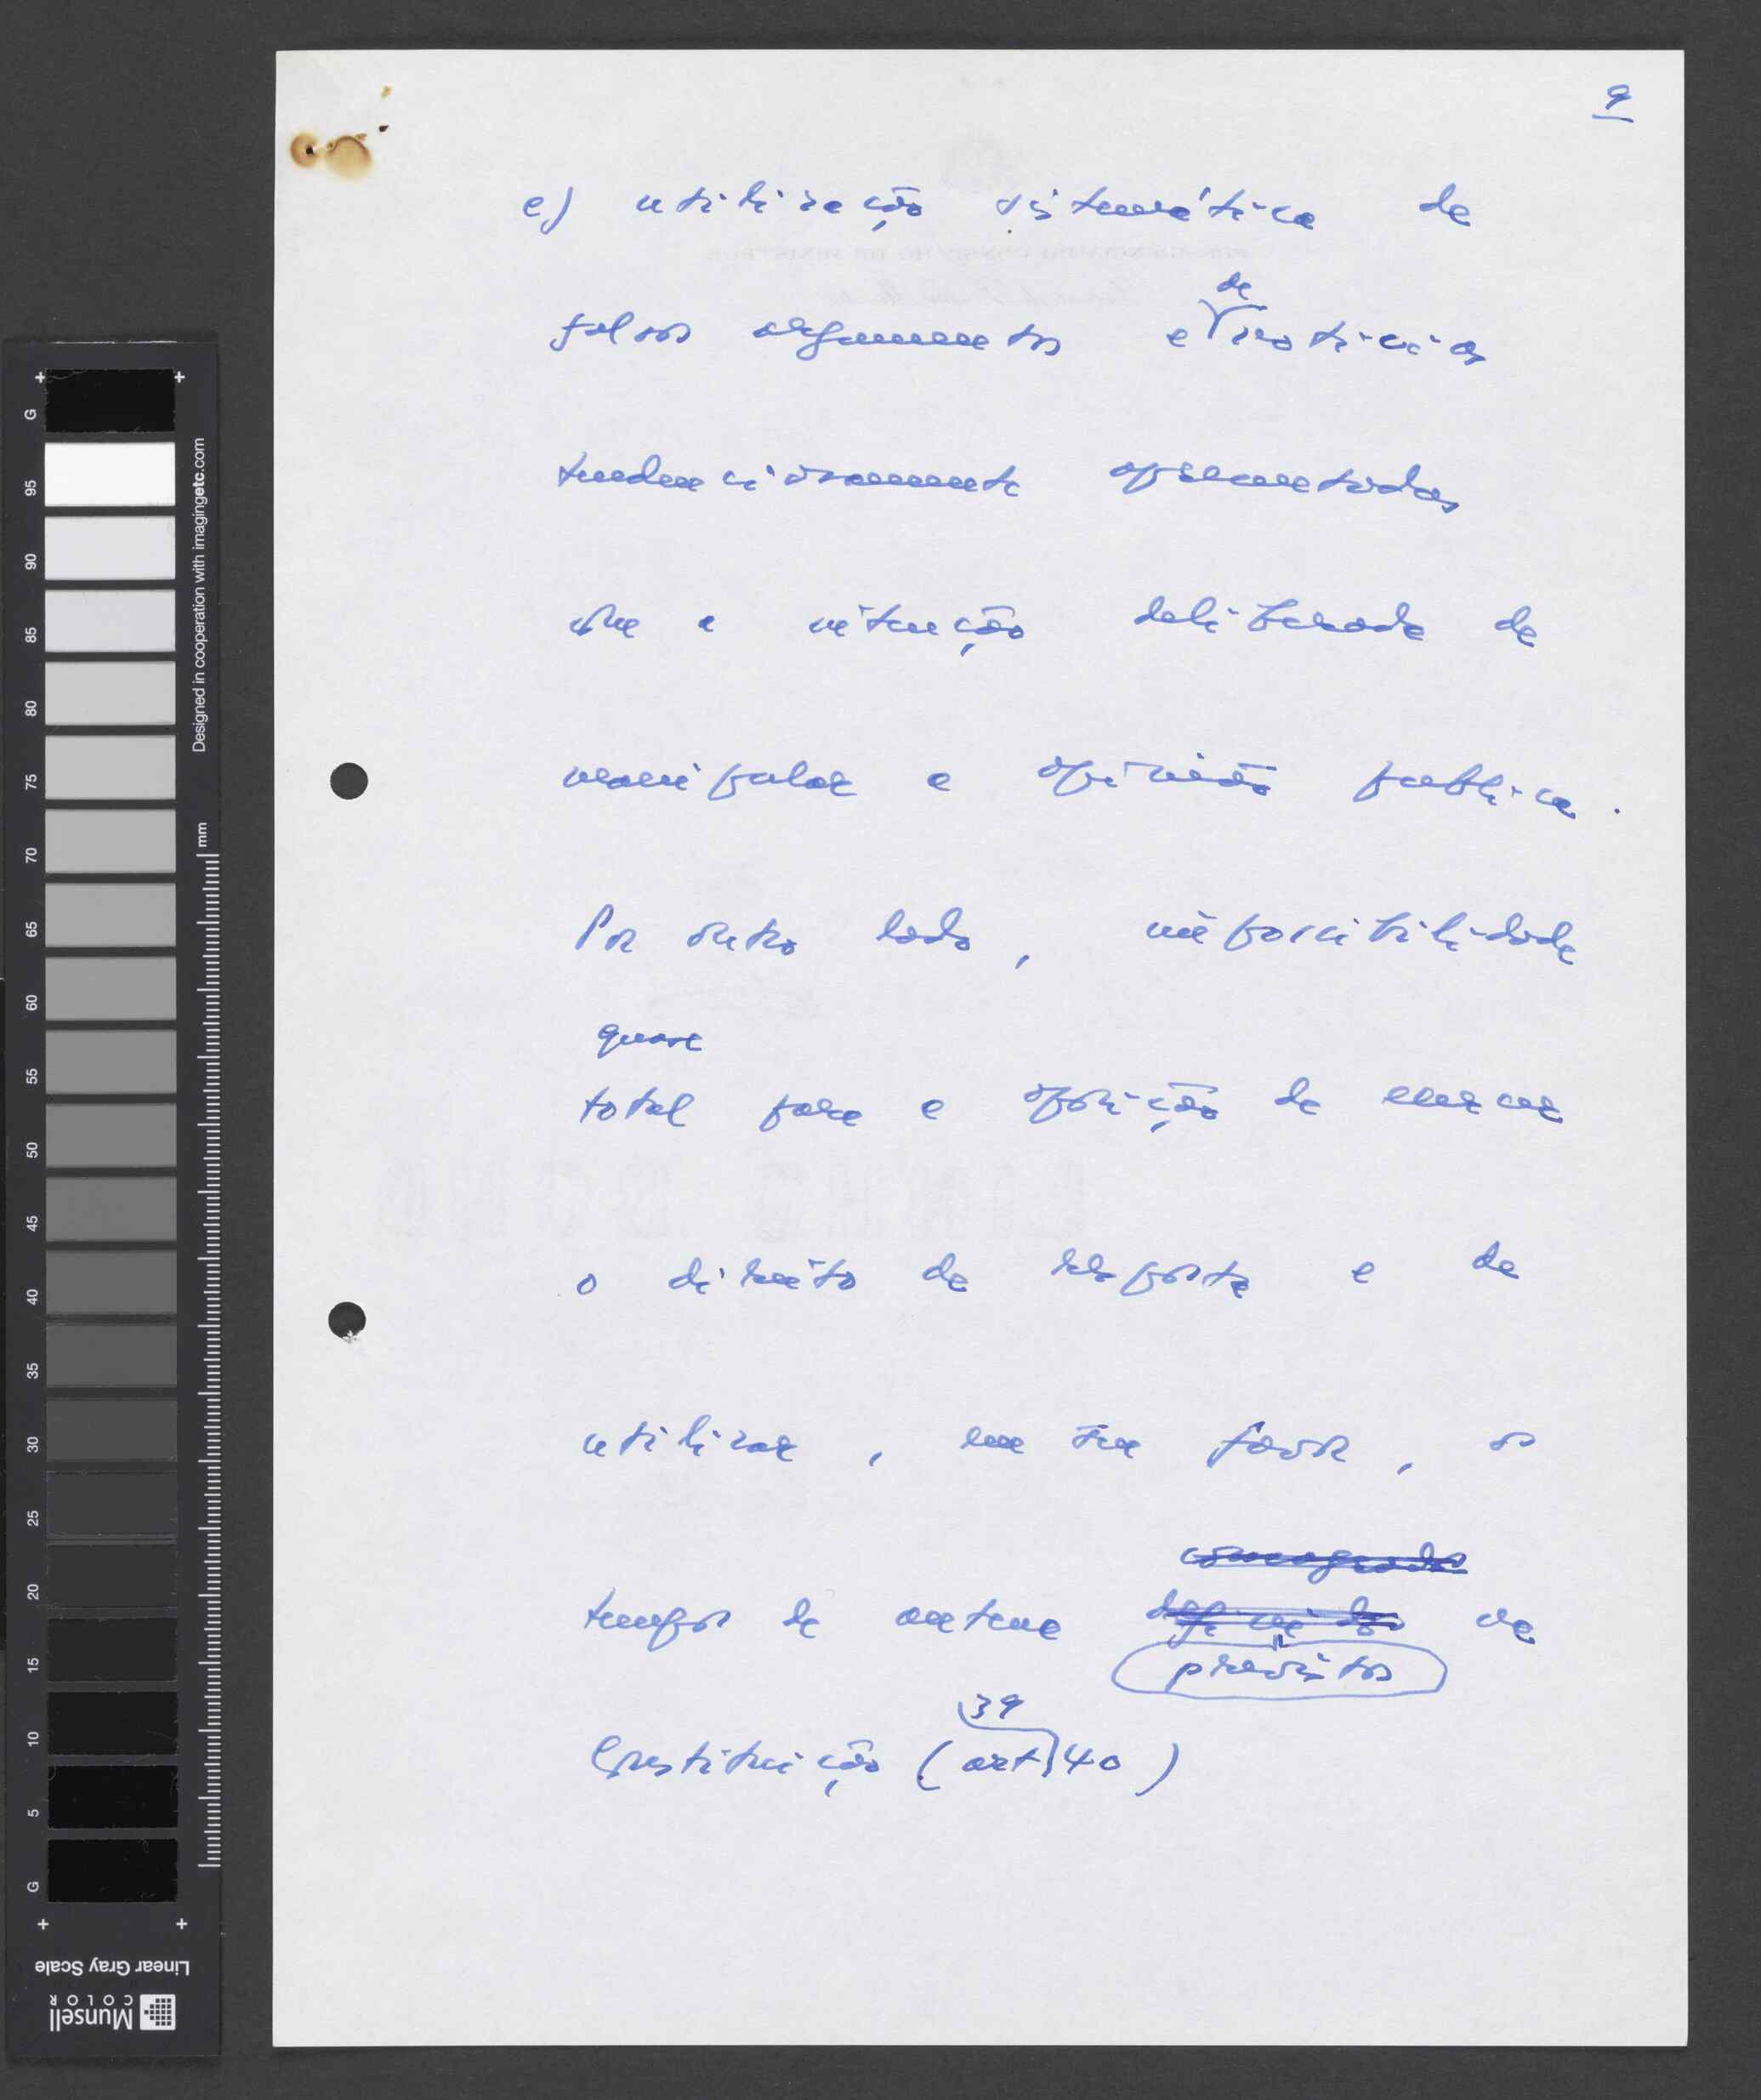 9
e) utilização sistemática de
falsos argumentos e de notícias
tendenciosamente apresentadas
com a intenção deliberada de
manipular a opinião publica.
Por outro lado, impossibilidade
quase
total para a oposição de exercer
o direito de resposta e de
utilizar, em seu favor, os
consagrados
tempos de antena definidos na
previstos
39
Constituição (art 40)
G
95
90
85
80
75
70
65
60
55
50
45
40
35
30
25
20
15
10
5
G
Designed in cooperation with imagingetc.com
mm
Linear Gray Scale
Munsell
COLOR